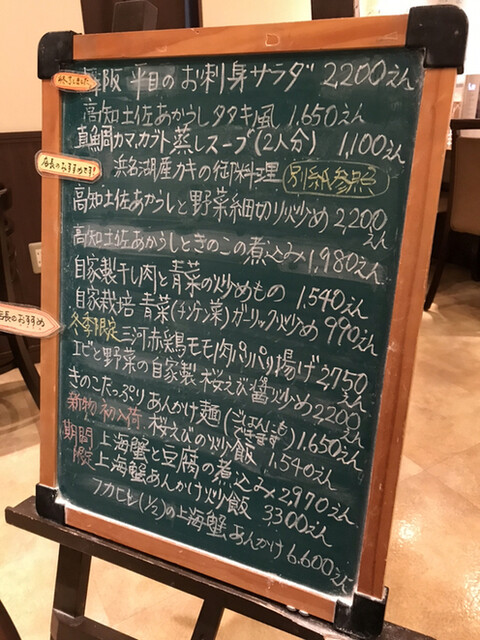 阪 平目のお刺身サラダ 2,200えん
高知土佐あかうしタタキ風 1,650えん
真鯛カマ,カブト蒸しスープ(2人分) 1,100えん
店長のおすすめです!
浜名湖産カキの御料理 別紙参照
高知土佐あかうしと野菜細切り炒め 2,200えん
高知土佐あかうしときのこの煮込み 1,980えん
自家製干し肉と青菜の炒めもの 1,540えん
自家栽培 青菜(チンゲン菜)ガーリック炒め 990えん
店長のおすすめ
冬季限定 三河赤鶏モモ肉パリパリ揚げ 2,750えん
エビと野菜の自家製 桜えび醤炒め 2,200えん
きのこたっぷりあんかけ麺(ごはんにもできます) 1,650えん
新物 初入荷 桜えびの炒飯 1,540えん
期間限定 上海蟹と豆腐の煮込み 2970えん
上海蟹あんかけ炒飯 3300えん
フカヒレ(½)の上海蟹あんかけ 6,600えん